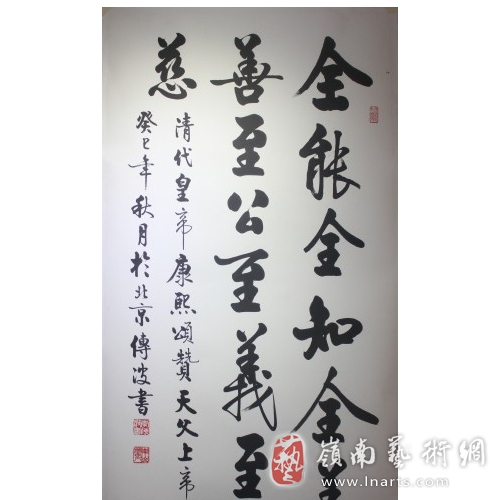 全能全知全
善至公至義至
慈
清代皇帝康熙頌贊天父上帝
癸巳年秋月於北京傳波書
藝
嶺南藝術網
www.lnarts.com